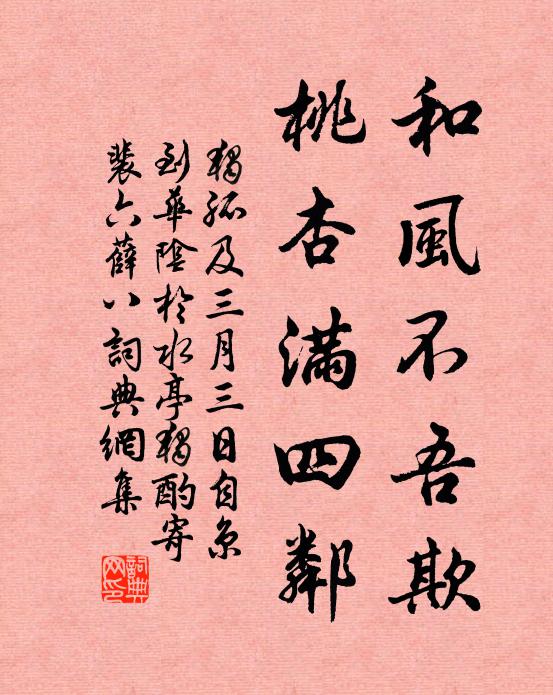 和風不吾欺
桃杏滿四鄰
獨孤及三月三日自京
到華陰於水亭獨酌寄
裴六薛八詞典網集
詞典
网印